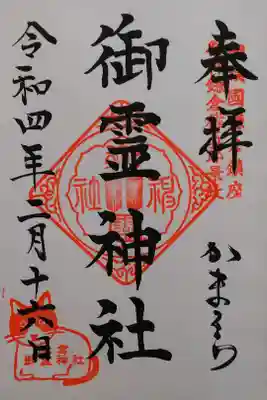 奉拝
かまくら
御霊神社
令和四年二月十六日